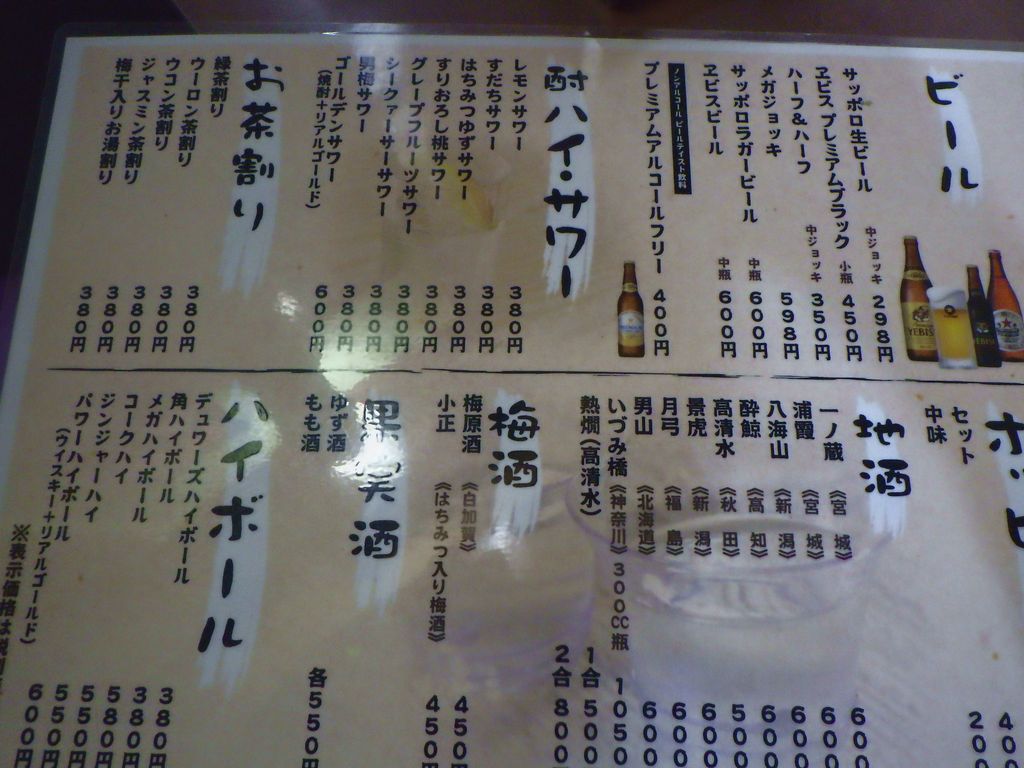 ビール
サッポロ生ビール 中ジョッキ 298円
ヱビス プレミアムブラック 小瓶 450円
ハーフ&ハーフ 中ジョッキ 350円
メガジョッキ 598円
サッポロラガービール 中瓶 600円
ヱビスビール 中瓶 600円
ノンアルコールビールテイスト飲料
プレミアムアルコールフリー 400円
酎ハイ・サワー
レモンサワー 380円
すだちサワー 380円
はちみつゆずサワー 380円
すりおろし桃サワー 380円
グレープフルーツサワー 380円
シークァーサーサワー 380円
男梅サワー 380円
ゴールデンサワー 600円
(焼酎+リアルゴールド)
お茶割り
緑茶割り 380円
ウーロン茶割り 380円
ウコン茶割り 380円
ジャスミン茶割り 380円
梅干入りお湯割り 380円
ホッピ
セット 40
中味 20
地酒
一ノ蔵 《宮城》 600
浦霞 《宮城》 600
八海山 《新潟》 600
酔鯨 《高知》 600
高清水 《秋田》 500
景虎 《新潟》 600
月弓 《福島》 600
男山 《北海道》 600
いづみ橋 《神奈川》 300CC瓶 1050
熱燗(高清水) 1合 500
2合 800
梅酒
梅原酒 《白加賀》 450円
小正 《はちみつ入り梅酒》 450円
果実酒
ゆず酒
もも酒 各550円
ハイボール
デュワーズハイボール 380円
角ハイボール 380円
メガハイボール 580円
コークハイ 550円
ジンジャーハイ 550円
パワーハイボール 600円
(ウイスキー+リアルゴールド)
※表示価格は税別